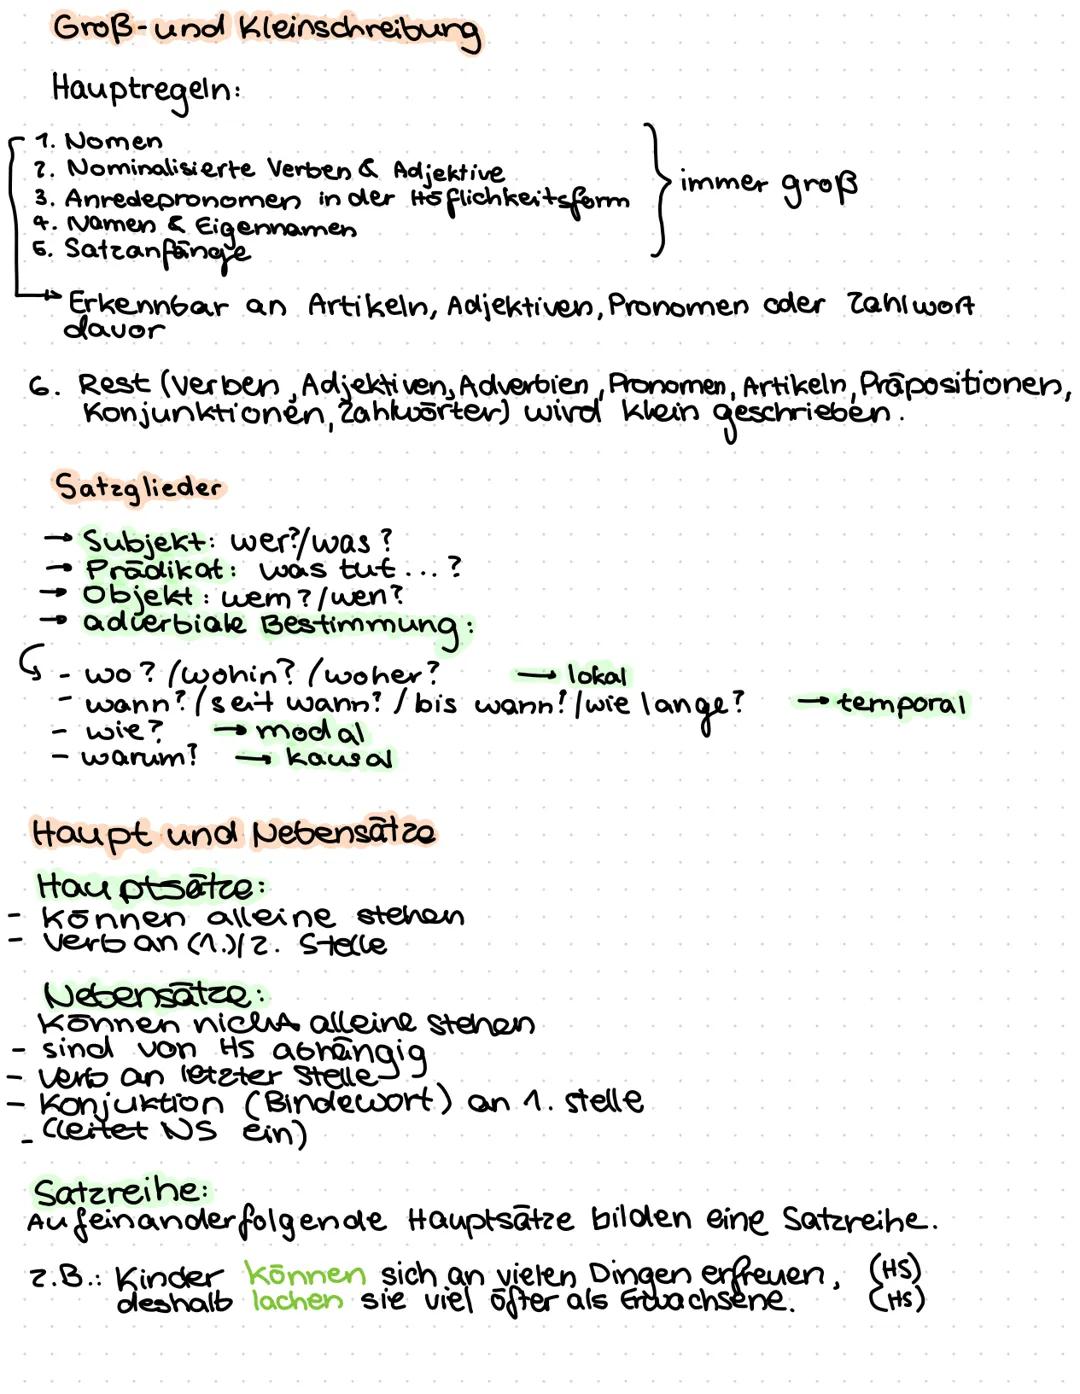 Groß- und Kleinschreibung
Hauptregeln:
1. Nomen
2. Nominalisierte Verben & Adjektive
3. Anredepronomen in der Höflichkeitsform
4. Namen & Eigennamen
5. Satzanfänge
immer groß
→ Erkennbar an Artikeln, Adjektiven, Pronomen oder Zahlwort
davor
6. Rest (Verben, Adjektiven, Adverbien, Pronomen, Artikeln, Präpositionen,
Konjunktionen, Zahlwörter) wird klein geschrieben.
Satzglieder
→ Subjekt: wer?/was?
→ Prädikat: was tut...?
→ Objekt: wem?/wen?
→ adverbiale Bestimmung:
- wo? /wohin? /woher? → lokal
- wann? /seit wann? / bis wann? /wie lange? → temporal
- wie? → modal
- warum? → kausal
Haupt und Nebensätze
Hauptsätze:
- können alleine stehen
- Verb an (1.)/2. Stelle
Nebensätze:
können nicht alleine stehen
- sind von HS abhängig
- Verb an letzter Stelle
- Konjuktion (Bindewort) an 1. stelle
- (leitet NS ein)
Satzreihe:
Aufeinanderfolgende Hauptsätze bilden eine Satzreihe.
z.B.: Kinder können sich an vielen Dingen erfreuen, (HS)
deshalb lachen sie viel öfter als Erwachsene. (HS)